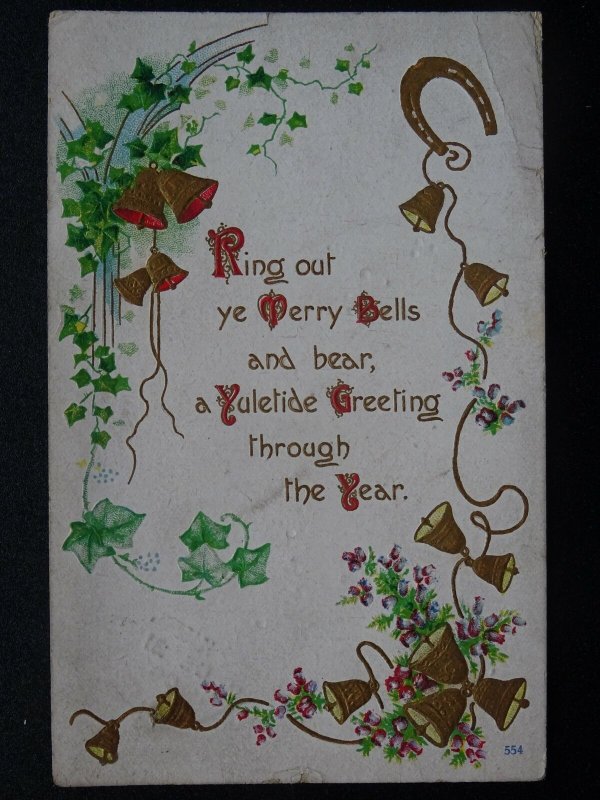 Ring out
ye Merry Bells
and bear,
a Yuletide Greeting
through
the Year.
554